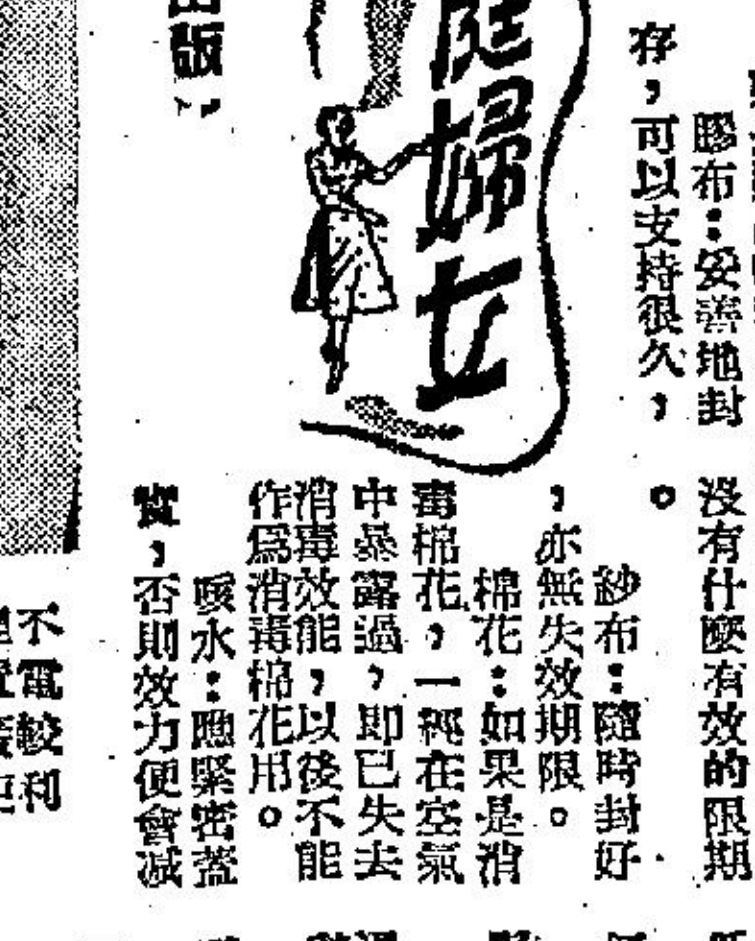 膠布：妥善地封
存，可以支持很久，
庭婦女
出版，
沒有什麼有效的限期
。
紗布：隨時封好
，亦無失效期限。
棉花：如果是消
毒棉花，一經在空氣
中暴露過，即已失去
消毒效能，以後不能
作爲消毒棉花用。
咳水：應緊密蓋
實，否則效力便會減
不電較利